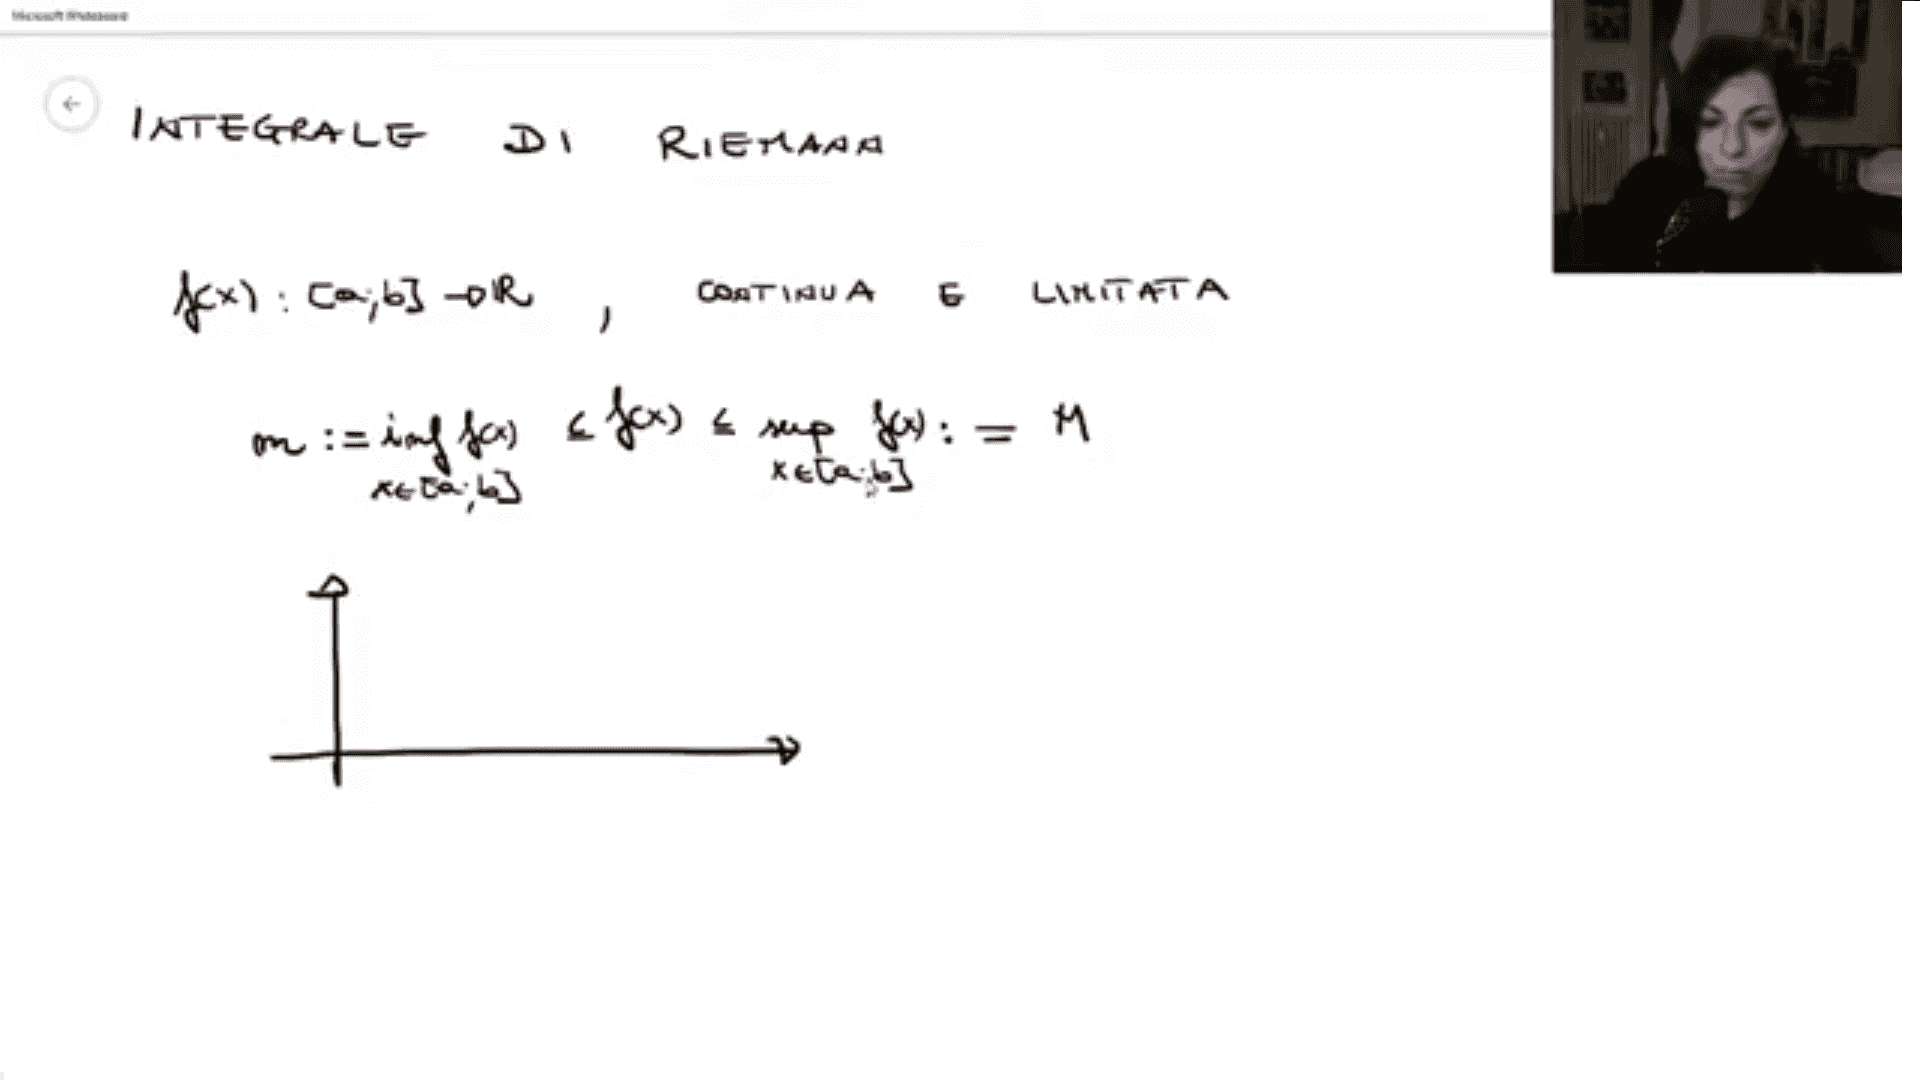 Microsoft Whiteboard
INTEGRALE DI RIEMANN
f(x) : [a;b] → ℝ , CONTINUA E LIMITATA
m := inf f(x) ≤ f(x) ≤ sup f(x) := M
x∈[a;b] x∈[a;b]